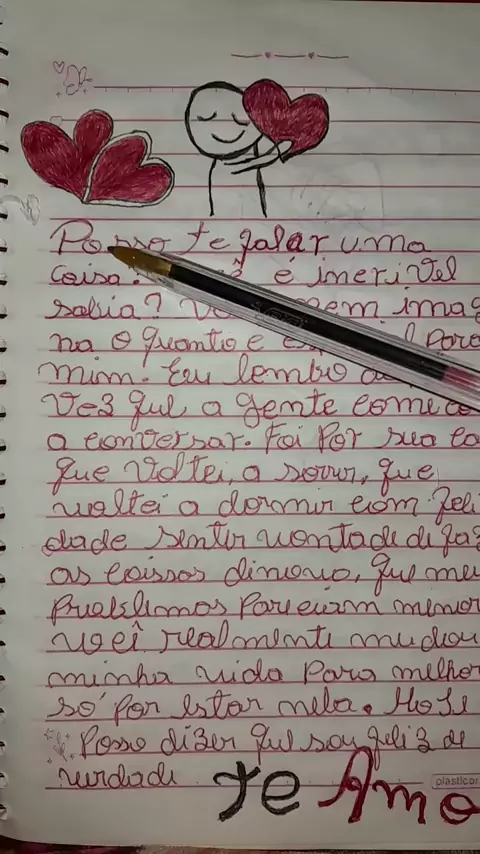 Posso te falar uma
coisa. é incrivel
sabia? nem imag
na o quanto e para
mim. Eu lembro da
vez que a gente começo
a conversar. Foi por sua ca
que voltei, a sorrir, que
voltei a dormir com feli
dade sentir vontade di faz
as coissas dinovo, que meu
problemas pareciam menor
você realmente mudou
minha vida para melhor
só por estar nela. Hoje
Posso dizer que sou feliz de
verdade te Amo
plasticor